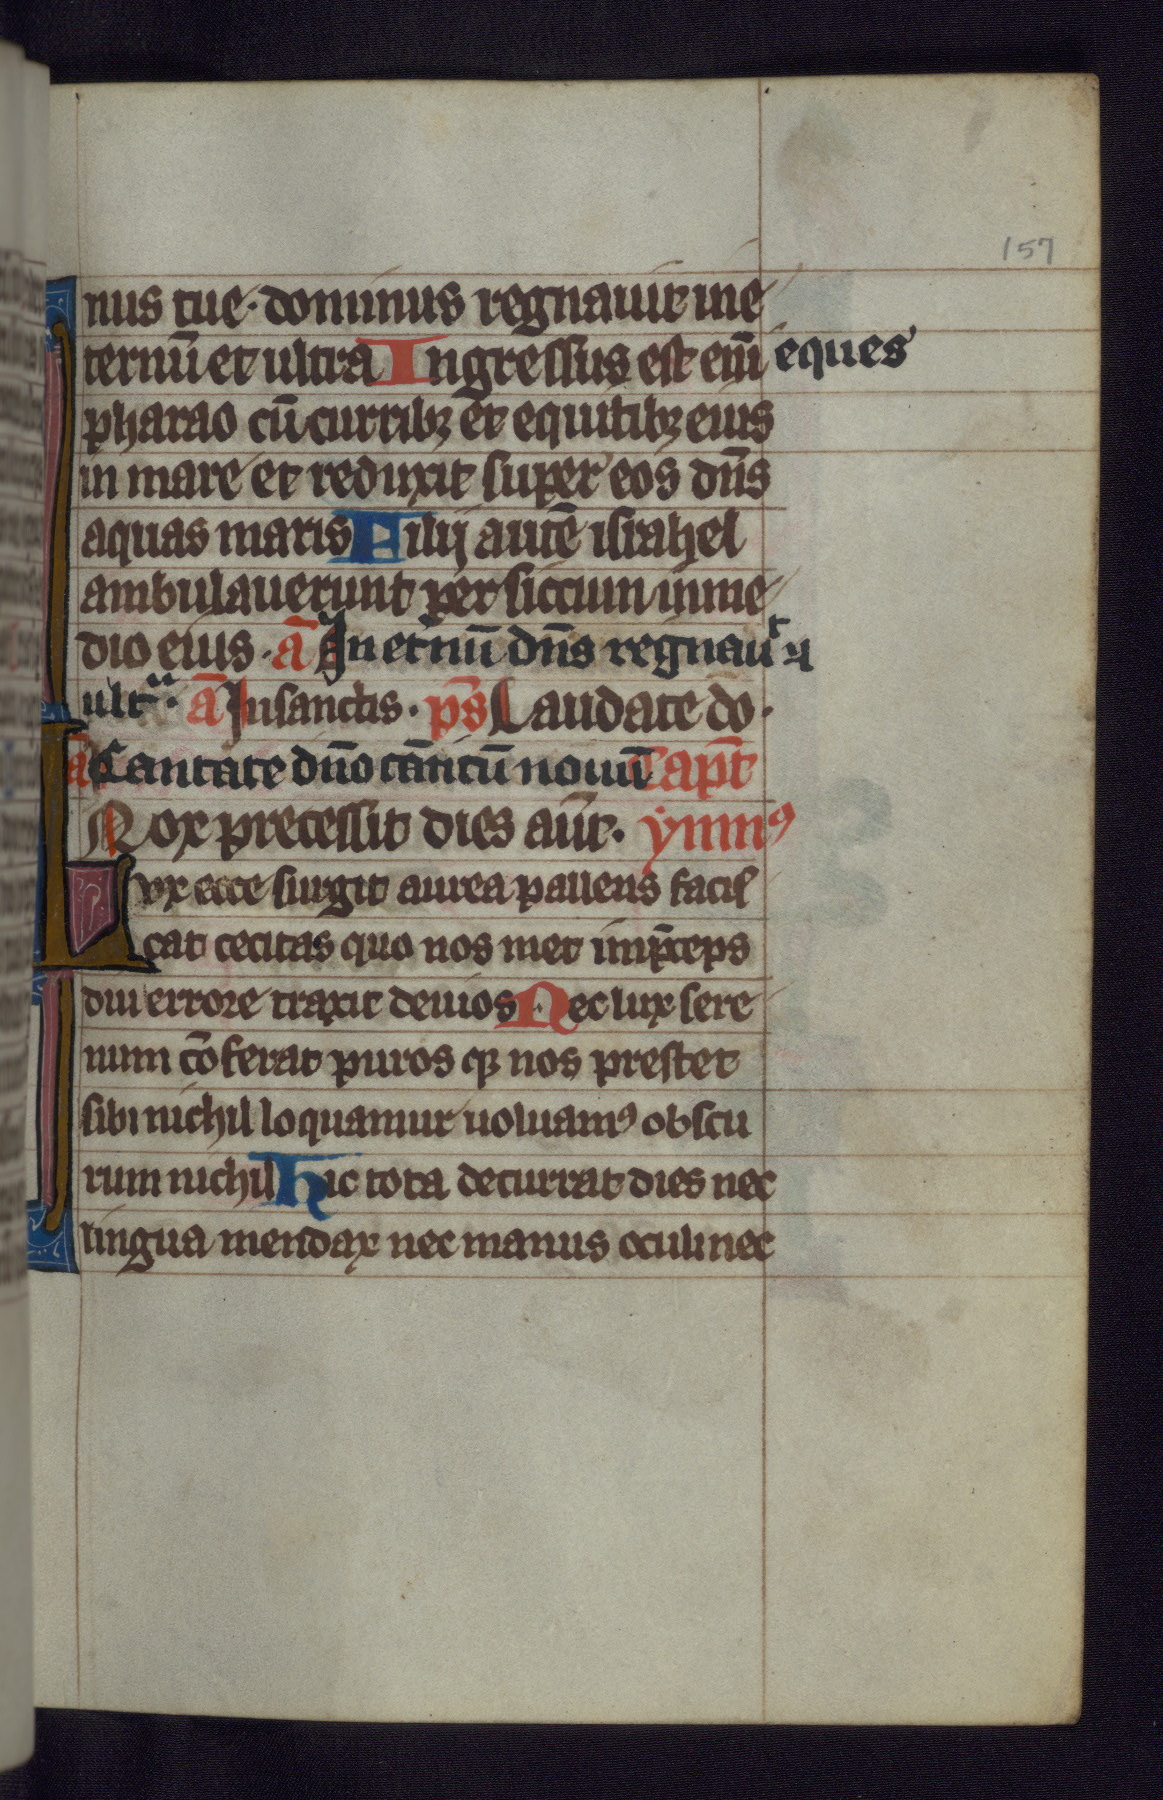 157
nus tue. dominus regnauit in e
ternū et ultra Ingressus est eni͞ eques
pharao cū curribꝫ et equitibꝫ eius
in mare et reduxit super eos dn̄s
aquas maris Filij autē israhel
ambulauerunt per siccum in me
dio eius. ā In et̄nū dn̄s regnauᵗ ⁊
ultᵃ. ā In sanctis. ps̄ Laudate do.
ā Cantate dn̄o cāticū nouū Capt̄
Nox precessit dies aūt. ymnꝰ
Lux ecce surgit aurea pallens facis
cat cecitas quo nos met inp̄ceps
diu errore traxit deuios Nec lux sere
num cōferat puros qꝫ nos prestet
sibi nichil loquamur uoluamꝰ obscu
rum nichil Hic tota decurrat dies nec
lingua mendax nec manus oculi nec